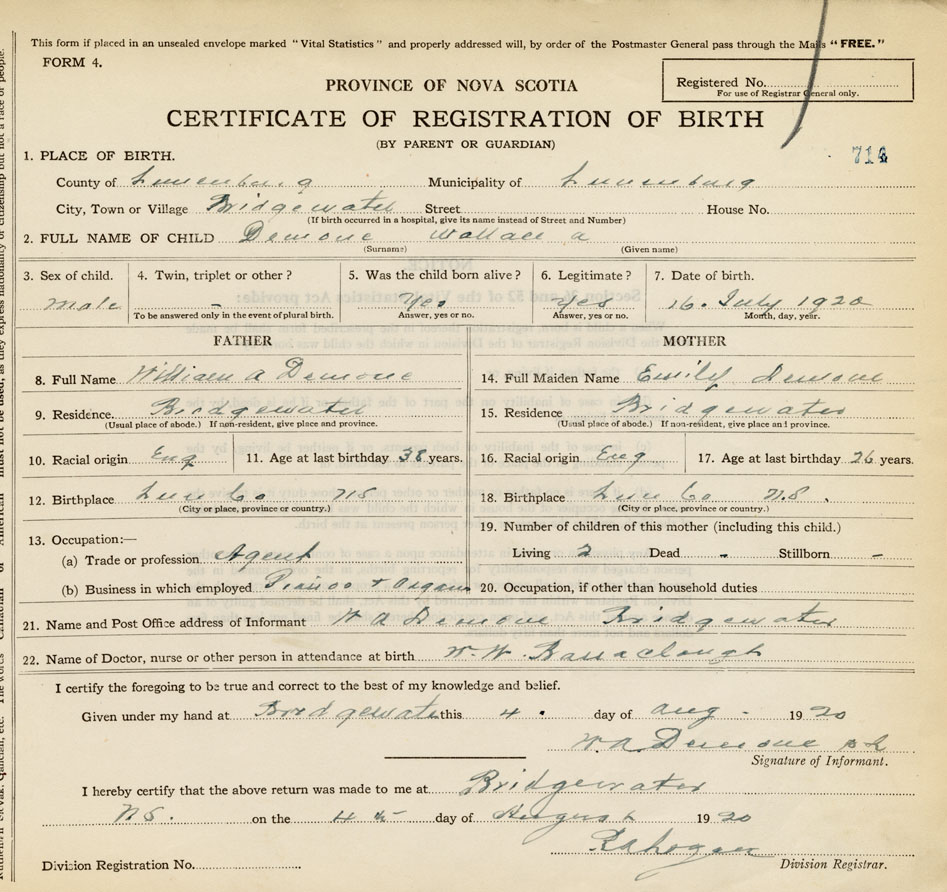 This form if placed in an unsealed envelope marked "Vital Statistics" and properly addressed will, by order of the Postmaster General pass through the Mails "FREE."
FORM 4.
Registered No.
For use of Registrar General only.
PROVINCE OF NOVA SCOTIA
CERTIFICATE OF REGISTRATION OF BIRTH
(BY PARENT OR GUARDIAN)
714
1. PLACE OF BIRTH.
County of Lunenburg Municipality of Lunenburg
City, Town or Village Bridgewater Street House No.
(If birth occurred in a hospital, give its name instead of Street and Number)
2. FULL NAME OF CHILD Demone Wallace A
(Surname) (Given name)
3. Sex of child. 4. Twin, triplet or other? 5. Was the child born alive? 6. Legitimate? 7. Date of birth.
Male - Yes Yes 16. July 1920
To be answered only in the event of plural birth. Answer, yes or no. Answer, yes or no. Month, day, year.
FATHER MOTHER
8. Full Name William A Demone 14. Full Maiden Name Emily Demone
9. Residence. Bridgewater 15. Residence Bridgewater
(Usual place of abode.) If non-resident, give place and province. (Usual place of abode.) If non-resident, give place and province.
10. Racial origin Eng 11. Age at last birthday 38 years. 16. Racial origin Eng 17. Age at last birthday 26 years.
12. Birthplace Lun Co NS 18. Birthplace Lun Co N.S.
(City or place, province or country.) (City or place, province or country.)
13. Occupation:— 19. Number of children of this mother (including this child.)
(a) Trade or profession Agent Living 2 Dead - Stillborn -
(b) Business in which employed Pianos + Organs 20. Occupation, if other than household duties
21. Name and Post Office address of Informant W A Demone Bridgewater
22. Name of Doctor, nurse or other person in attendance at birth W. W. Barraclough
I certify the foregoing to be true and correct to the best of my knowledge and belief.
Given under my hand at Bridgewater this 4 day of Aug - 1920
W. A. Demone
Signature of Informant.
I hereby certify that the above return was made to me at Bridgewater
NS. on the 4th day of August 1920
Division Registration No. Division Registrar.